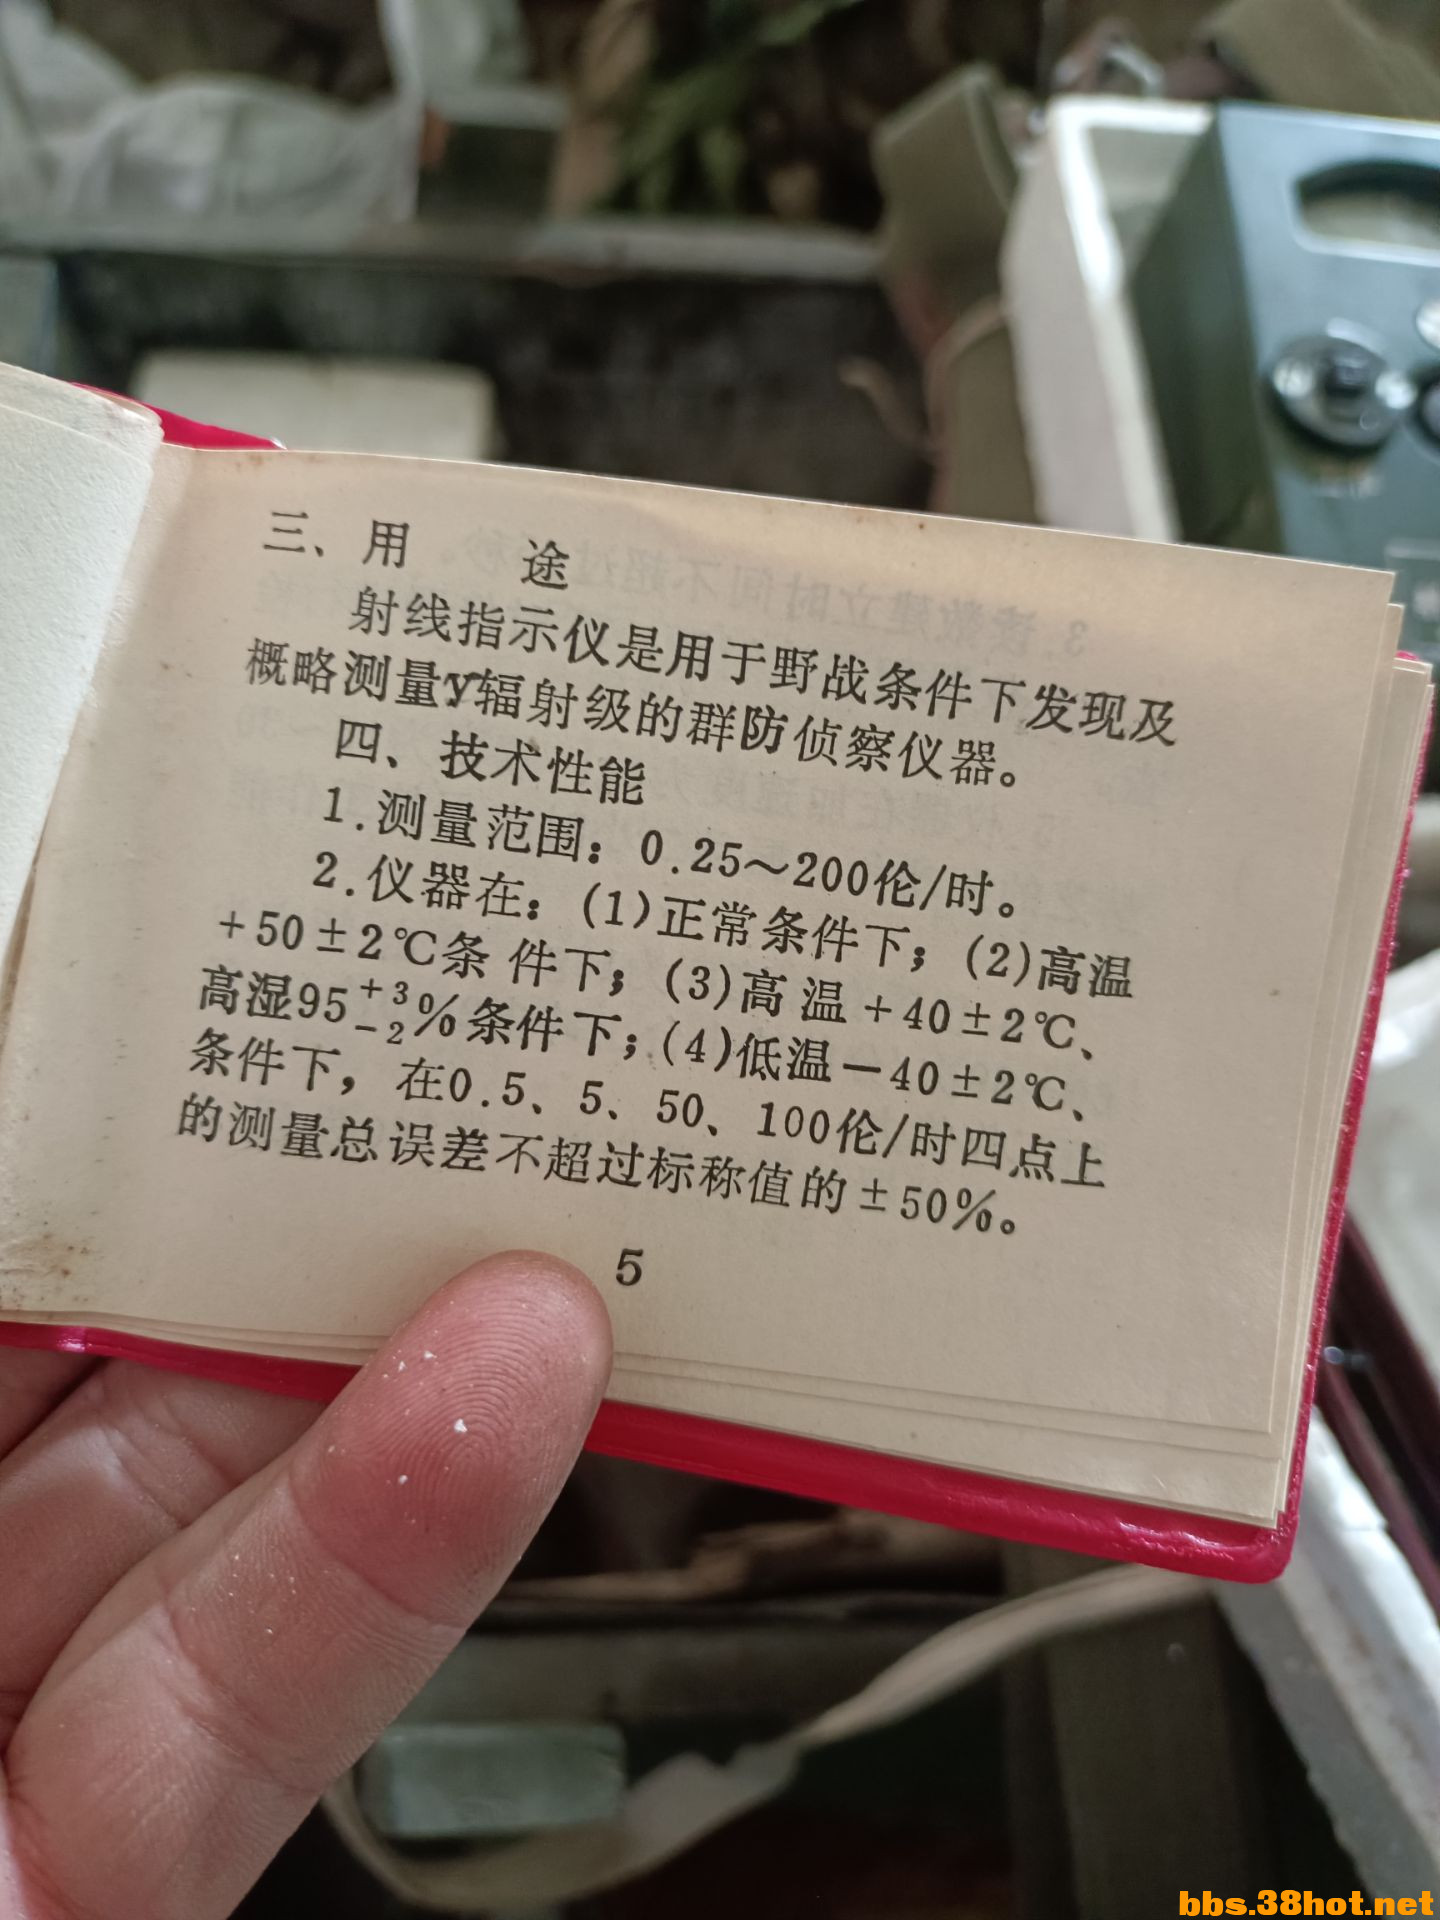 三、用 途
射线指示仪是用于野战条件下发现及
概略测量γ辐射级的群防侦察仪器。
四、技术性能
1.测量范围：0.25～200伦/时。
2.仪器在：(1)正常条件下；(2)高温
+50±2℃条件下；(3)高温+40±2℃、
高湿95+3-2%条件下；(4)低温－40±2℃、
条件下，在0.5、5、50、100伦/时四点上
的测量总误差不超过标称值的±50%。
5
bbs.38hot.net